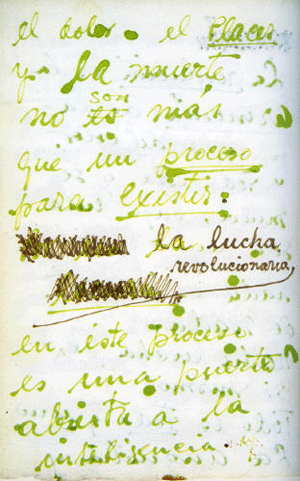 el dolor. el placer
y la muerte
no son más
que un proceso
para existir.
la lucha
revolucionaria
en este proceso
es una puerta
abierta a la
inteligencia.